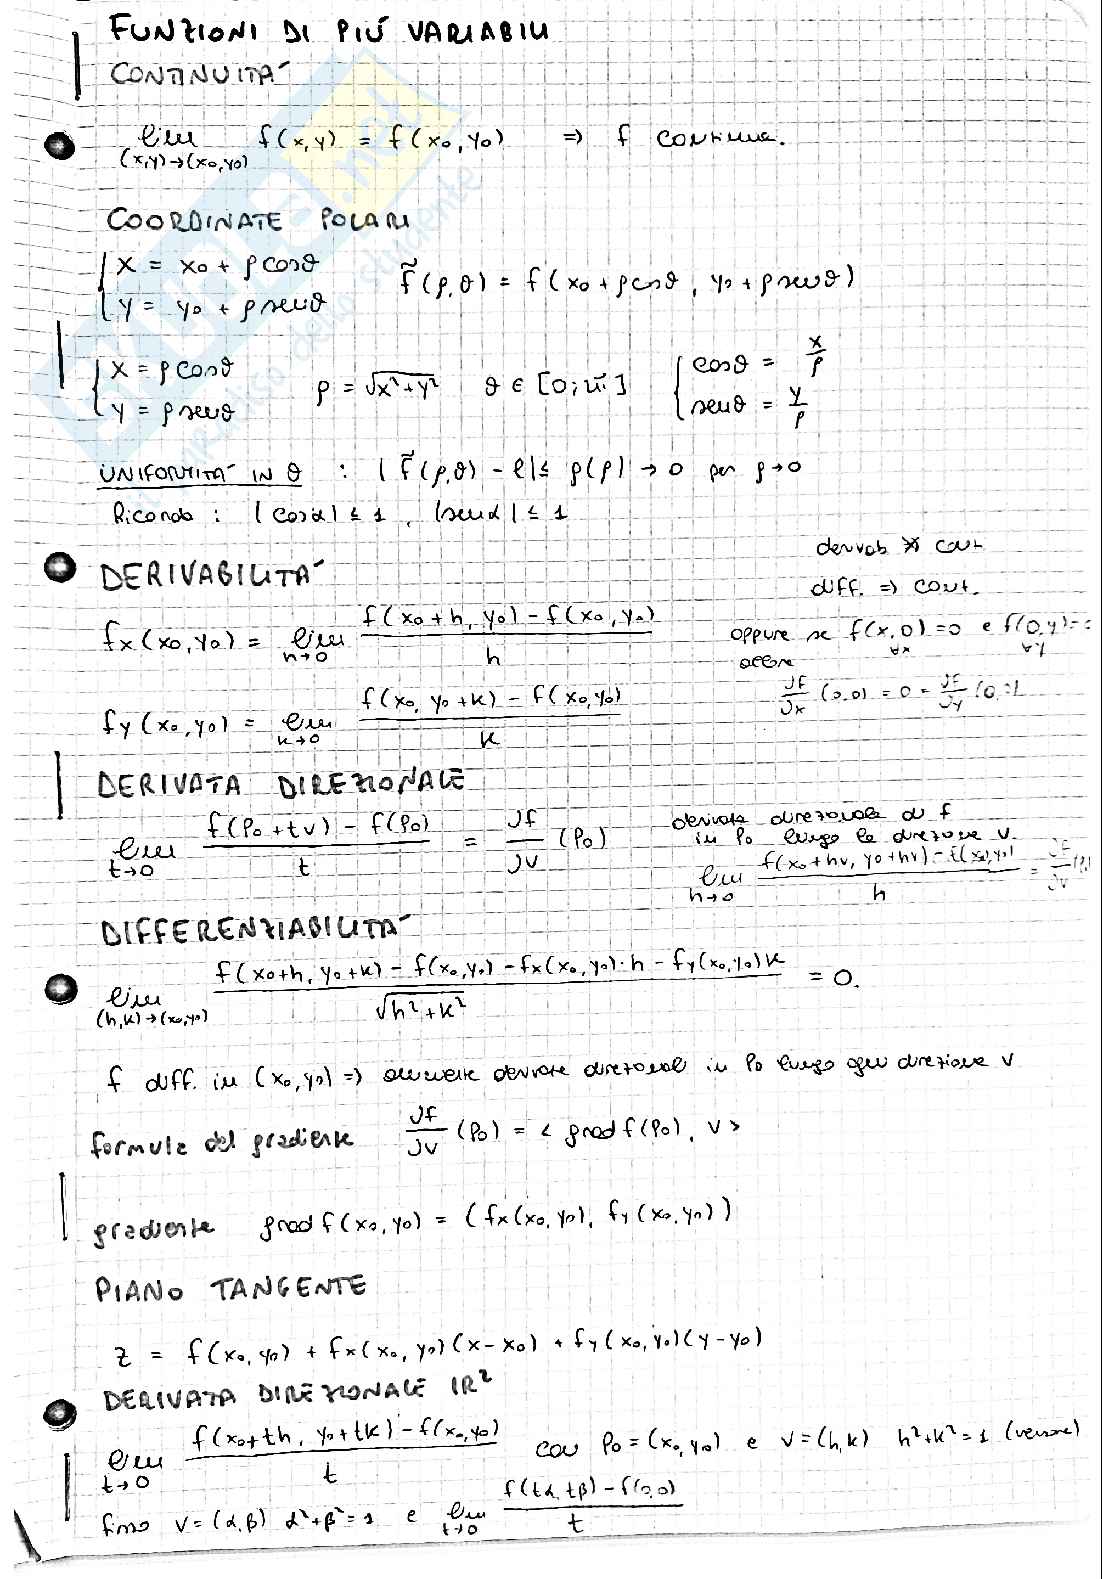 FUNZIONI DI PIÚ VARIABILI
CONTINUITÀ
lim (x,y)→(x₀,y₀) f(x,y) = f(x₀,y₀) ⇒ f continua.
COORDINATE POLARI
{ x = x₀ + ρcosθ
{ y = y₀ + ρsenθ
f̃(ρ,θ) = f(x₀+ρcosθ, y₀+ρsenθ)
{ x = ρcosθ
{ y = ρsenθ
ρ = √x²+y² θ ∈ [0;2π]
{ cosθ = x/ρ
{ senθ = y/ρ
UNIFORMITÀ IN θ : |f̃(ρ,θ) - l| ≤ ρ(ρ) → 0 per ρ→0
Ricorda : |cosα| ≤ 1, |senα| ≤ 1
DERIVABILITÀ
derivab ⇏ cont
diff. ⇒ cont.
fx(x₀,y₀) = lim h→0 f(x₀+h, y₀) - f(x₀,y₀) / h
oppure se f(x,0) = 0 ∀x e f(0,y) = ∀y
allora ∂f/∂x (0,0) = 0 = ∂f/∂y (0,
fy(x₀,y₀) = lim k→0 f(x₀, y₀+k) - f(x₀,y₀) / k
DERIVATA DIREZIONALE
lim t→0 f(P₀+tv) - f(P₀) / t = ∂f/∂v (P₀)
derivata direzionale di f
in P₀ lungo la direzione v.
lim h→0 f(x₀+hv, y₀+hv) - f(x₀,y₀) / h = ∂f/∂v
DIFFERENZIABILITÀ
lim (h,k)→(x₀,y₀) f(x₀+h, y₀+k) - f(x₀,y₀) - fx(x₀,y₀)·h - fy(x₀,y₀)k / √h²+k² = 0.
f diff. in (x₀,y₀) ⇒ ammette derivate direzionali in P₀ lungo ogni direzione v
formula del gradiente ∂f/∂v (P₀) = < grad f(P₀), v >
gradiente grad f(x₀,y₀) = (fx(x₀,y₀), fy(x₀,y₀))
PIANO TANGENTE
z = f(x₀,y₀) + fx(x₀,y₀)(x-x₀) + fy(x₀,y₀)(y-y₀)
DERIVATA DIREZIONALE IR²
lim t→0 f(x₀+th, y₀+tk) - f(x₀,y₀) / t con P₀=(x₀,y₀) e v=(h,k) h²+k²=1 (versore)
fisso v=(α,β) α²+β²=1 e lim t→0 f(tα,tβ) - f(0,0) / t